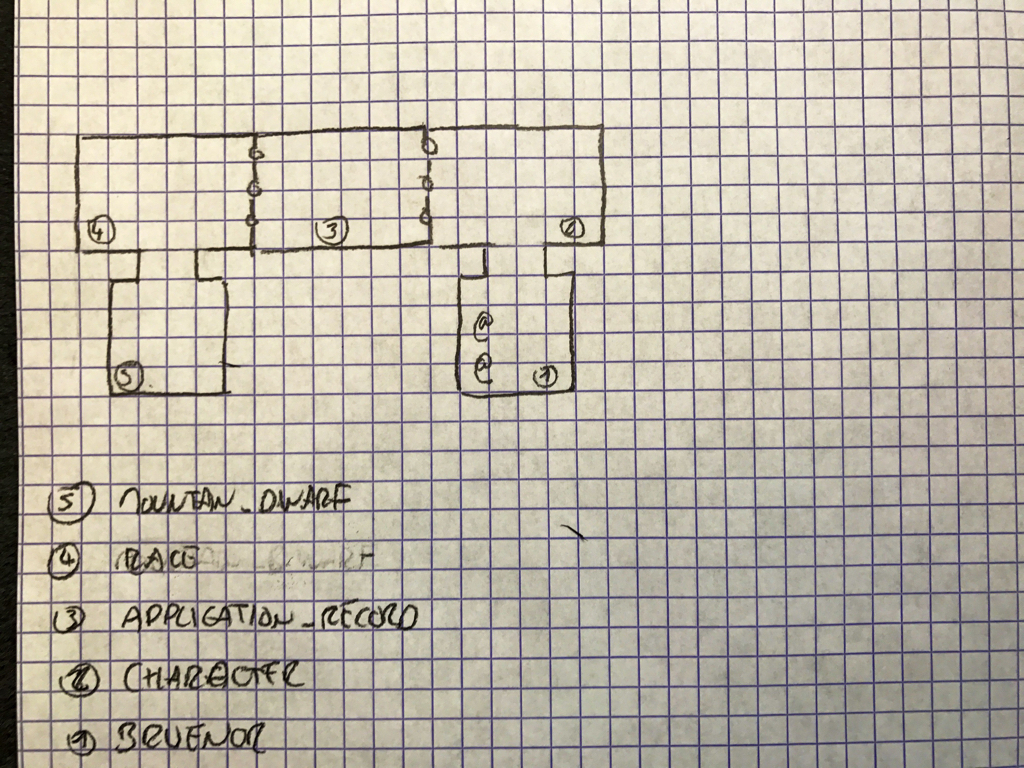 4 3 2
@
@
5 1
5 MOUNTAN_DWARF
4 RACE
3 APPLICATION_RECORD
2 CHARACTER
1 BRUENOR